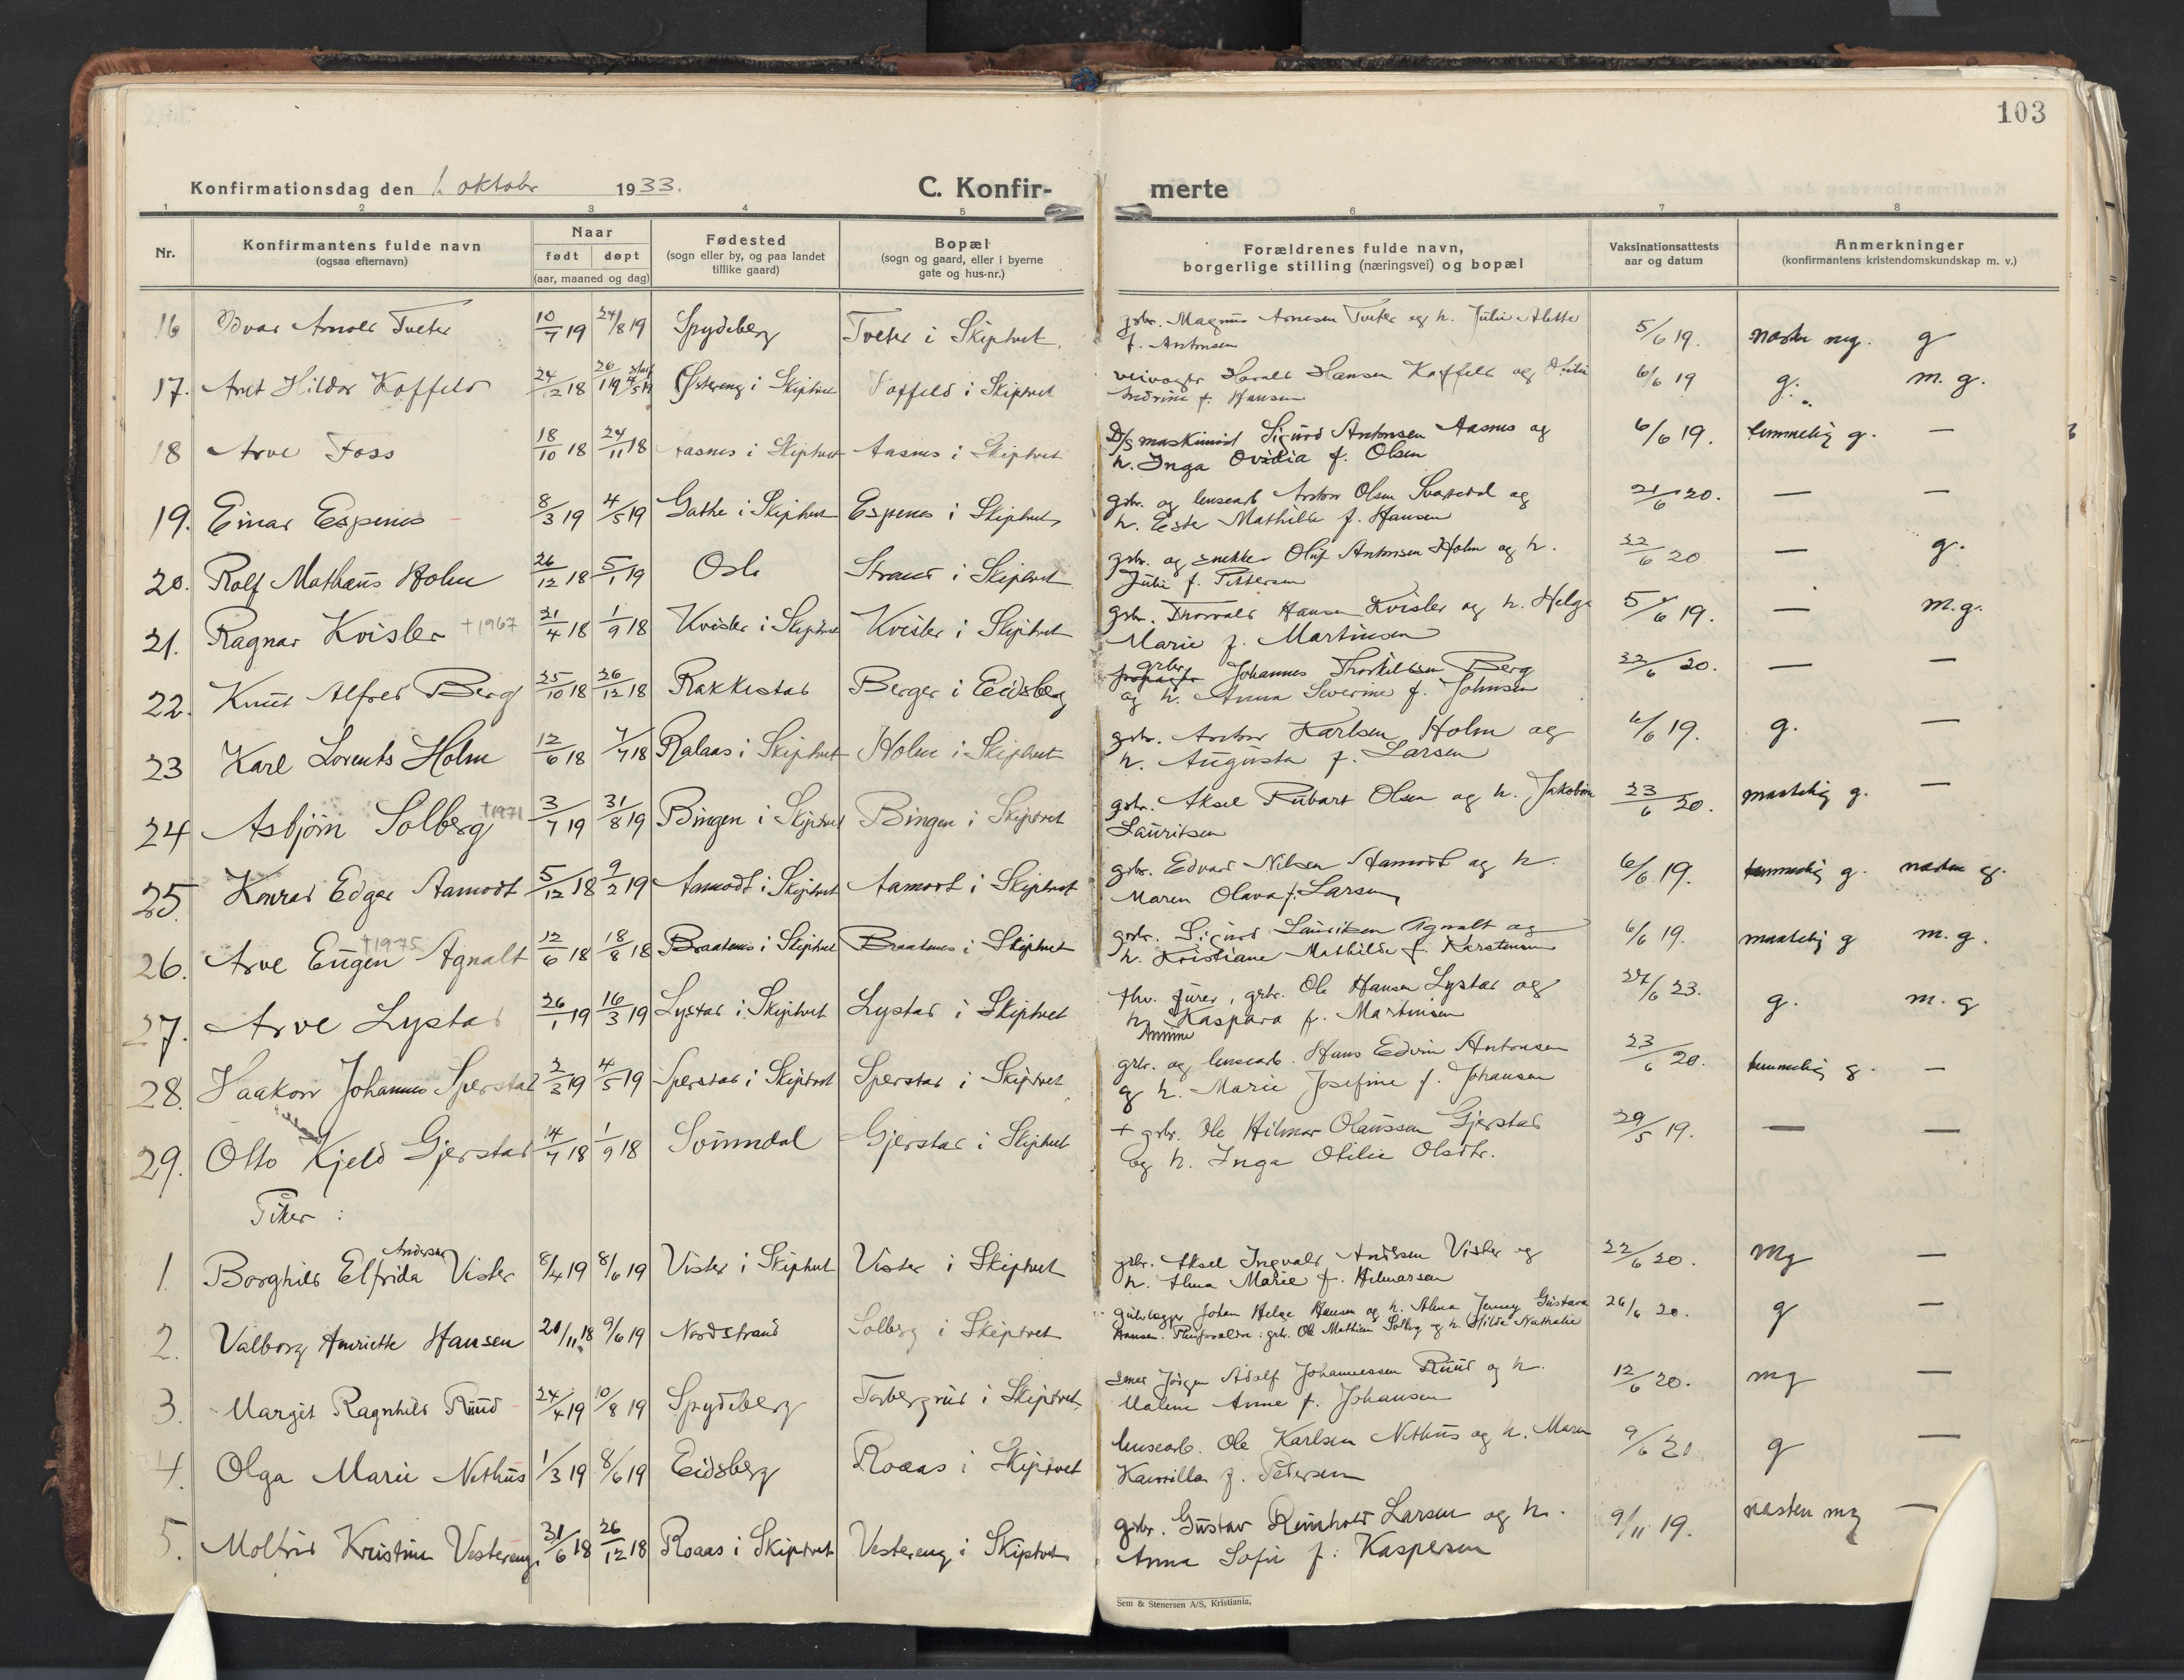 103
Konfirmationsdag den 1. oktobr 1933.
C. Konfirmerte
1 2 3 4 5 6 7 8
Nr. Konfirmantens fulde navn (ogsaa efternavn) Naar født døpt (aar, maaned og dag) Fødested (sogn eller by, og paa landet tillike gaard) Bopæl (sogn og gaard, eller i byerne gate og hus-nr.) Forældrenes fulde navn, borgerlige stilling (næringsvei) og bopæl Vaksinationsattests aar og datum Anmerkninger (konfirmantens kristendomskundskap m. v.)
16 Arnold Tveter 10/7 19 24/8 19 Spydeberg Tveter i Skiptvet gbr. Magnus Arnesen Tveter og h. Julie Alette f. Antonsen 5/6 19. næsten mg. g
17. Hildor Koffeld 24/12 18 26/1 19 Østereng i Skiptvet Koffeld i Skiptvet veivogter Harald Hansen Koffeld og f. Hansen 6/6 19 g. m. g.
18 Arve Foss 18/10 18 24/11 18 Aasnes i Skiptvet Aasnes i Skiptvet D/S maskinist Sigurd Antonsen Aasnes og h. Inga Ovidia f. Olsen 6/6 19. temmelig g. —
19. Einar Espenes 8/3 19 4/5 19 i Skiptvet Espenes i Skiptvet gbr. og lensearb Anton Olsen og h. Ester Mathilde f. Hansen 21/6 20. — —
20. Rolf Mathæus Holm 26/12 18 5/1 19 Oslo Strand i Skiptvet gbr. og snekker Oluf Antonsen Holm og h. Julie f. Pettersen 22/6 20 — g.
21. Ragnar Kvisler †1967 21/4 18 1/9 18 Kvisler i Skiptvet Kvisler i Skiptvet gbr. Thorvald Hansen Kvisler og h. Helga Marie f. Martinsen 5/6 19. — m.g.
22. Knut Alfred Berg 25/10 18 26/12 18 Rakkestad Berger i Eidsberg gbr. Johannes Thorkildsen Berg og h. Anna Severine f. Johnsen 22/6 20. — —
23 Karl Lorents Holm 12/6 18 7/7 18 Ralaas i Skiptvet Holm i Skiptvet gbr. Anton Karlsen Holm og h. Augusta f. Larsen 6/6 19. g. —
24 Asbjørn Solberg †1971 3/7 19 31/8 19 Bingen i Skiptvet Bingen i Skiptvet gbr. Aksel Olsen og h. Jakobine Lauritsen 23/6 20. maatelig g. —
25. Konrad Edgar Aamodt 5/12 18 9/2 19 Aamodt i Skiptvet Aamodt i Skiptvet gbr. Edvard Nilsen Aamodt og h. Maren Olava f. Larsen 6/6 19. temmelig g. næsten g.
26. Arve Eugen Agnalt †1975 12/6 18 18/8 18 Braatenes i Skiptvet Braatenes i Skiptvet gbr. Sigurd Lauritsen Agnalt og h. Kristiane Mathilde f. Karstensen 6/6 19. maatelig g m. g.
27. Arve Lystad 26/1 19 16/3 19 Lystad i Skiptvet Lystad i Skiptvet fhv. furer, gbr. Ole Hansen Lystad og h. Kaspara f. Martinsen 27/6 23. g. m. g
28. Haakon Johannes Sperstad 2/3 19 4/5 19 Sperstad i Skiptvet Sperstad i Skiptvet gbr. og lensearb. Hans Edvin Antonsen og h. Marie Josefine f. Johansen 23/6 20. temmelig g. —
29. Otto Kjeld Gjerstad 14/7 18 1/9 18 Sönndal Gjerstad i Skiptvet + gbr. Ole Hilmar Olaussen Gjerstad og h. Inga Otilie Olsdtr. 29/5 19. — —
Piker :
1. Borghild Elfrida Andersen Vister 8/4 19 8/6 19 Vister i Skiptvet Vister i Skiptvet gbr. Aksel Ingvald Andersen Vister og h. Alma Marie f. Hilmarsen 22/6 20. mg —
2. Valborg Henriette Hansen 20/11 18 9/6 19 Nordstrand Solberg i Skiptvet gulvlegger Johan Helge Hansen og h. Alma Jenny Gustava Hansen. Pleiforældre: gbr. Ole Mathias Solberg og h. Hilda Nathalie 26/6 20. g —
3. Margit Ragnhild Ruud 24/4 19 10/8 19 Spydeberg Torbergrud i Skiptvet smed Jørgen Adolf Johannessen Ruud og h. Malene Anne f. Johansen 12/6 20. mg —
4. Olga Marie Nethus 1/3 19 8/6 19 Eidsberg Roaas i Skiptvet lensearb. Ole Karlsen Nethus og h. Maren Kamilla f. Petersen 9/6 20 g —
5. Molfrid Kristine Vestereng. 31/6 18 26/12 18 Roaas i Skiptvet Vestereng i Skiptvet gbr. Gustav Reinhold Larsen og h. Anna Sofie f. Kaspersen 9/11 19. næsten mg —
Sem & Stenersen A/S, Kristiania.